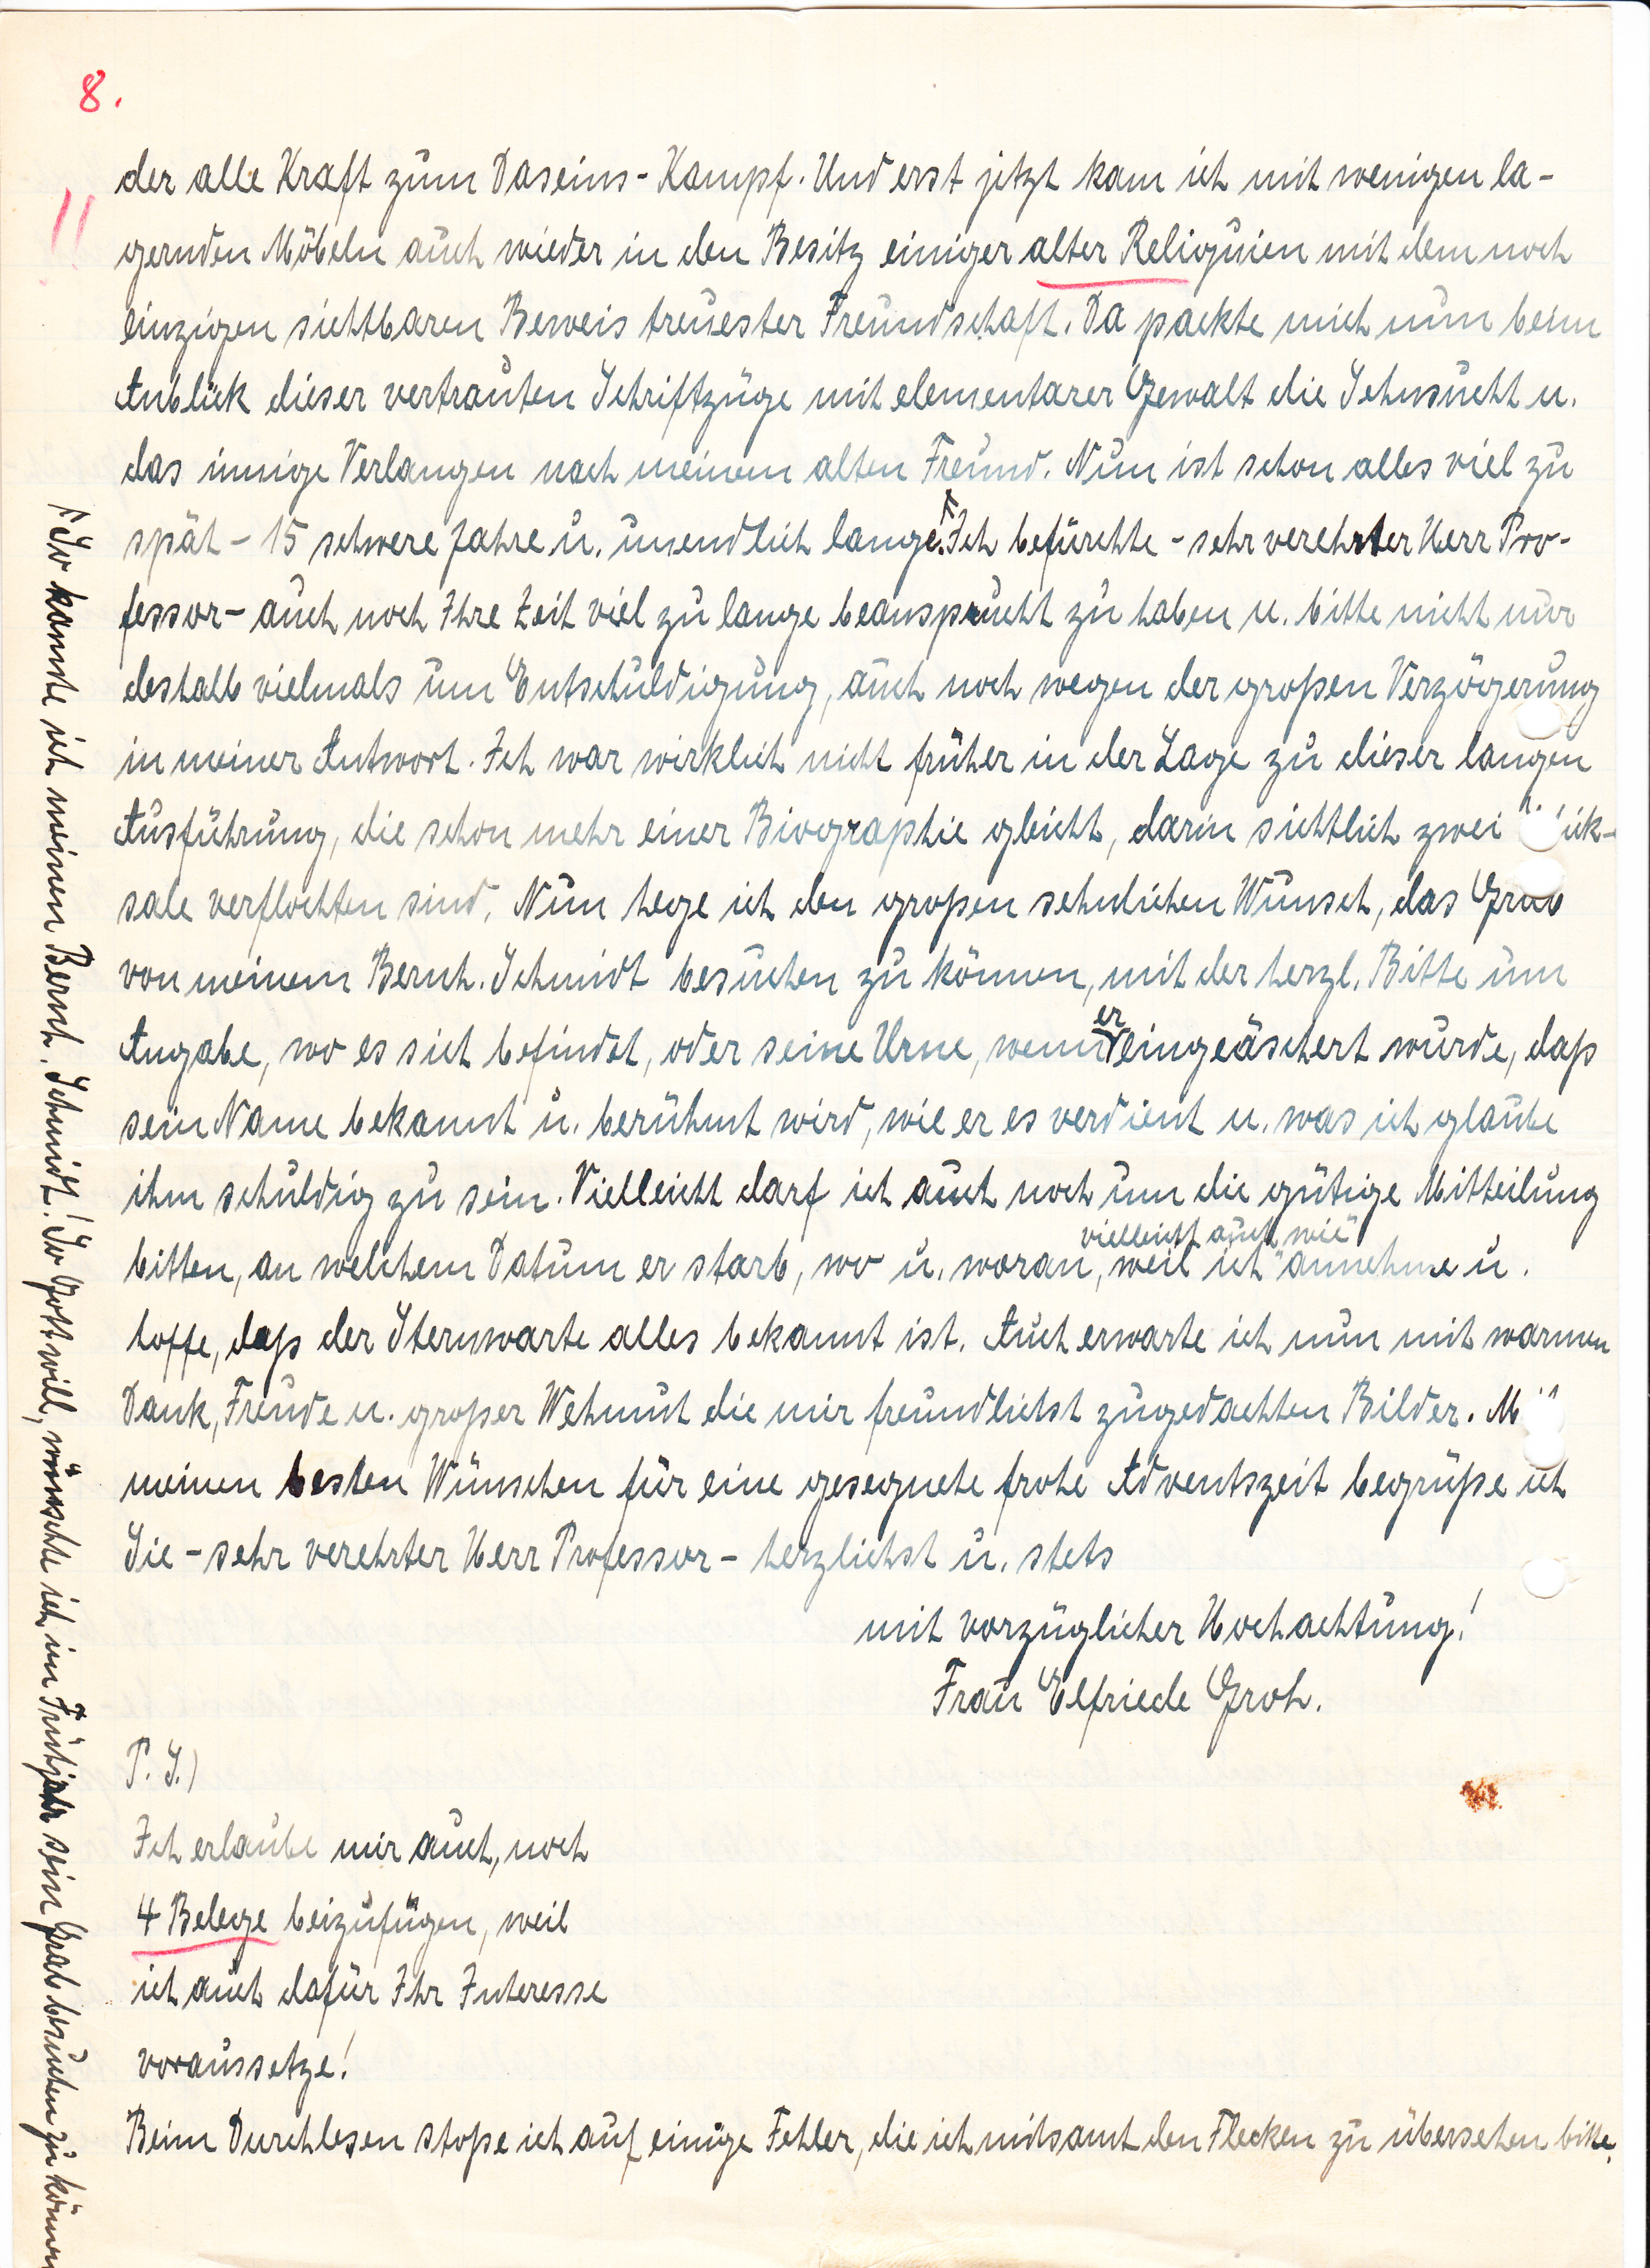 8.
der alle Kraft zum Daseins-Kampf. Und erst jetzt kam ich mit wenigen la-
gernden Möbeln auch wieder in den Besitz einiger alter Relioquien mit dem noch
einzigen sichtbaren Beweis treuester Freundschaft. Da packte mich nun beim
Anblick dieser vertrauten Schriftzüge mit elementarer Gewalt die Sehnsucht u.
das innige Verlangen nach meinem alten Freund. Nun ist schon alles viel zu
spät - 15 schwere Jahre u. unendlich lange. Ich befürchte - sehr verehrter Herr Pro-
fessor - auch noch Ihre Zeit viel zu lange beansprucht zu haben u. bitte nicht nur
deshalb vielmals um Entschuldigung, auch noch wegen der großen Verzögerung
in meiner Antwort. Ich war wirklich nicht früher in der Lage zu dieser langen
Ausführung, die schon mehr einer Biographie gleicht, darin sichtlich zwei
sale verflochten sind. Nun hege ich den großen sehnlichen Wunsch, das Grab
von meinem Bernh. Schmidt besuchen zu können, mit der herzl. Bitte um
Angabe, wo es sich befindet, oder seine Urne, wenn er eingeäschert wurde, daß
sein Name bekannt u. berühmt wird, wie er es verdient u. was ich glaube
ihm schuldig zu sein. Vielleicht darf ich auch noch um die gütige Mitteilung
vielleicht auch wie
bitten, an welchem Datum er starb, wo u. woran, weil ich annehme u.
hoffe, daß der Sternwarte alles bekannt ist. Auch erwarte ich nun mit warmen
Dank, Freude u. großer Wehmut die mir freundlichst zugedachten Bilder. Mit
meinen besten Wünschen für eine gesegnete frohe Adventszeit begrüße ich
Sie - sehr verehrter Herr Professor - herzlichst u. stets
mit vorzüglicher Hochachtung!
Frau Elfriede Groh.
P.S.)
Ich erlaube mir auch, noch
4 Belege beizufügen, weil
ich auch dafür Ihr Interesse
voraussetze!
Beim Durchlesen stoße ich auf einige Fehler, die ich mitsamt den Flecken zu übersehen bitte.
So kannte ich meinen Bernh. Schmidt! So Gott will, wünschte ich im Frühjahr sein Grab besuchen zu können